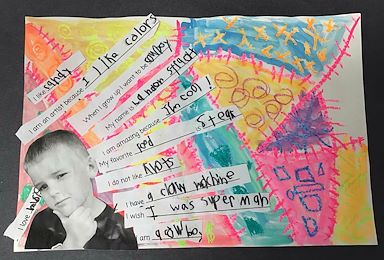 I like candy
I am an artist because I like colors
When I grow up I want to be
My name is
I am amazing because I'm cool!
My favorite food is Steak
I do not like
I have a claw machine
I wish I was super man
I am a cowboy
I love